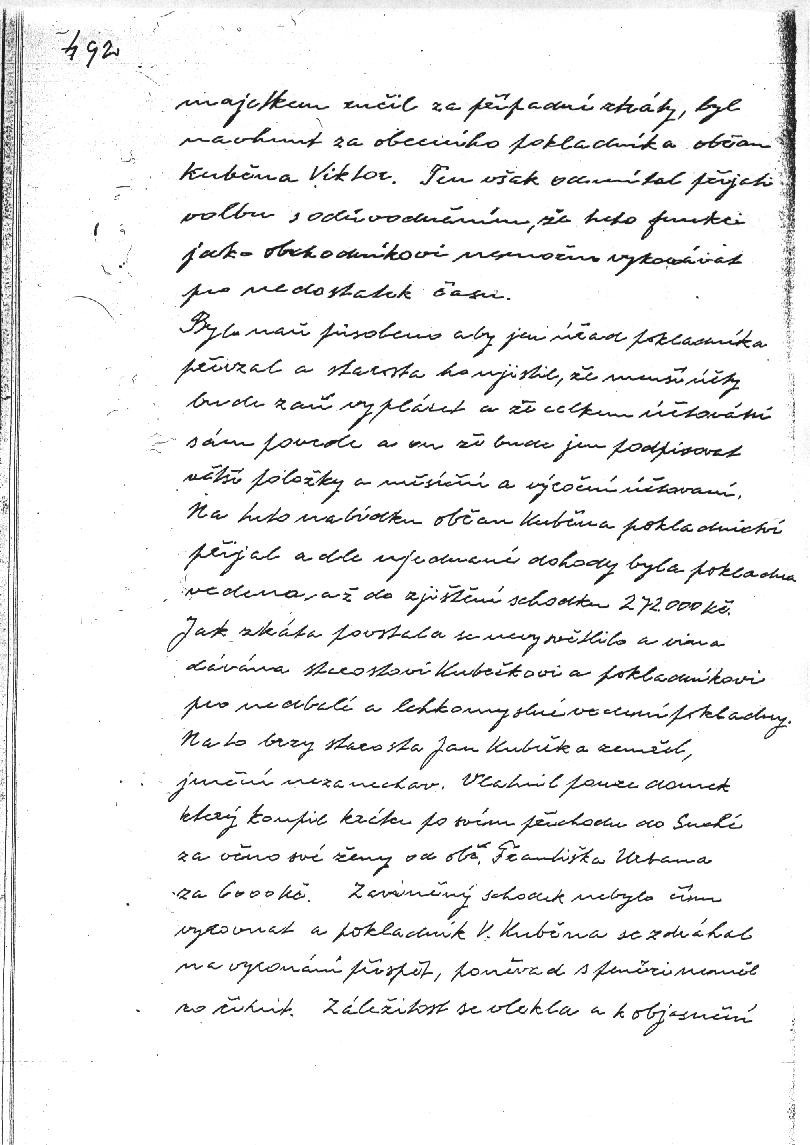 492
majetkem ručil za případné ztráty, byl
navrhnut za obecního pokladníka občan
Kuběna Viktor. Ten však odmítal přijati
volbu s odůvodněním, že tuto funkci
jako obchodníkovi nemožno vykonávat
pro nedostatek času.
Bylo naň působeno aby jen úřad pokladníka
převzal a starosta ho ujistil, že menší účty
bude zaň vyplácet a že celkem účtování
sám povede a on že bude jen podpisovat
větší položky a měsíční a výroční účtovaní.
Na tuto nabídku občan Kuběna pokladnictví
přijal a dle ujednané dohody byla pokladna
vedena, až do zjištění schodku 272.000 Kč.
Jak ztráta povstala se nevysvětlilo a vina
dávána starostovi Kubíčkovi a pokladníkovi
pro nedbalé a lehkomyslné vedení pokladny.
Na to brzy starosta Jan Kubíčka zemřel,
jmění nezanechav. Vlastnil pouze domek
který koupil krátce po svém příchodu do Suché
za věno své ženy od obč. Františka Urbana
za 6000 Kč. Zaviněný schodek nebylo čím
vyrovnat a pokladník V. Kuběna se zdráhal
na vyrovnání přispět, poněvad s penězi neměl
co činit. Záležitost se vlekla a k objasnění